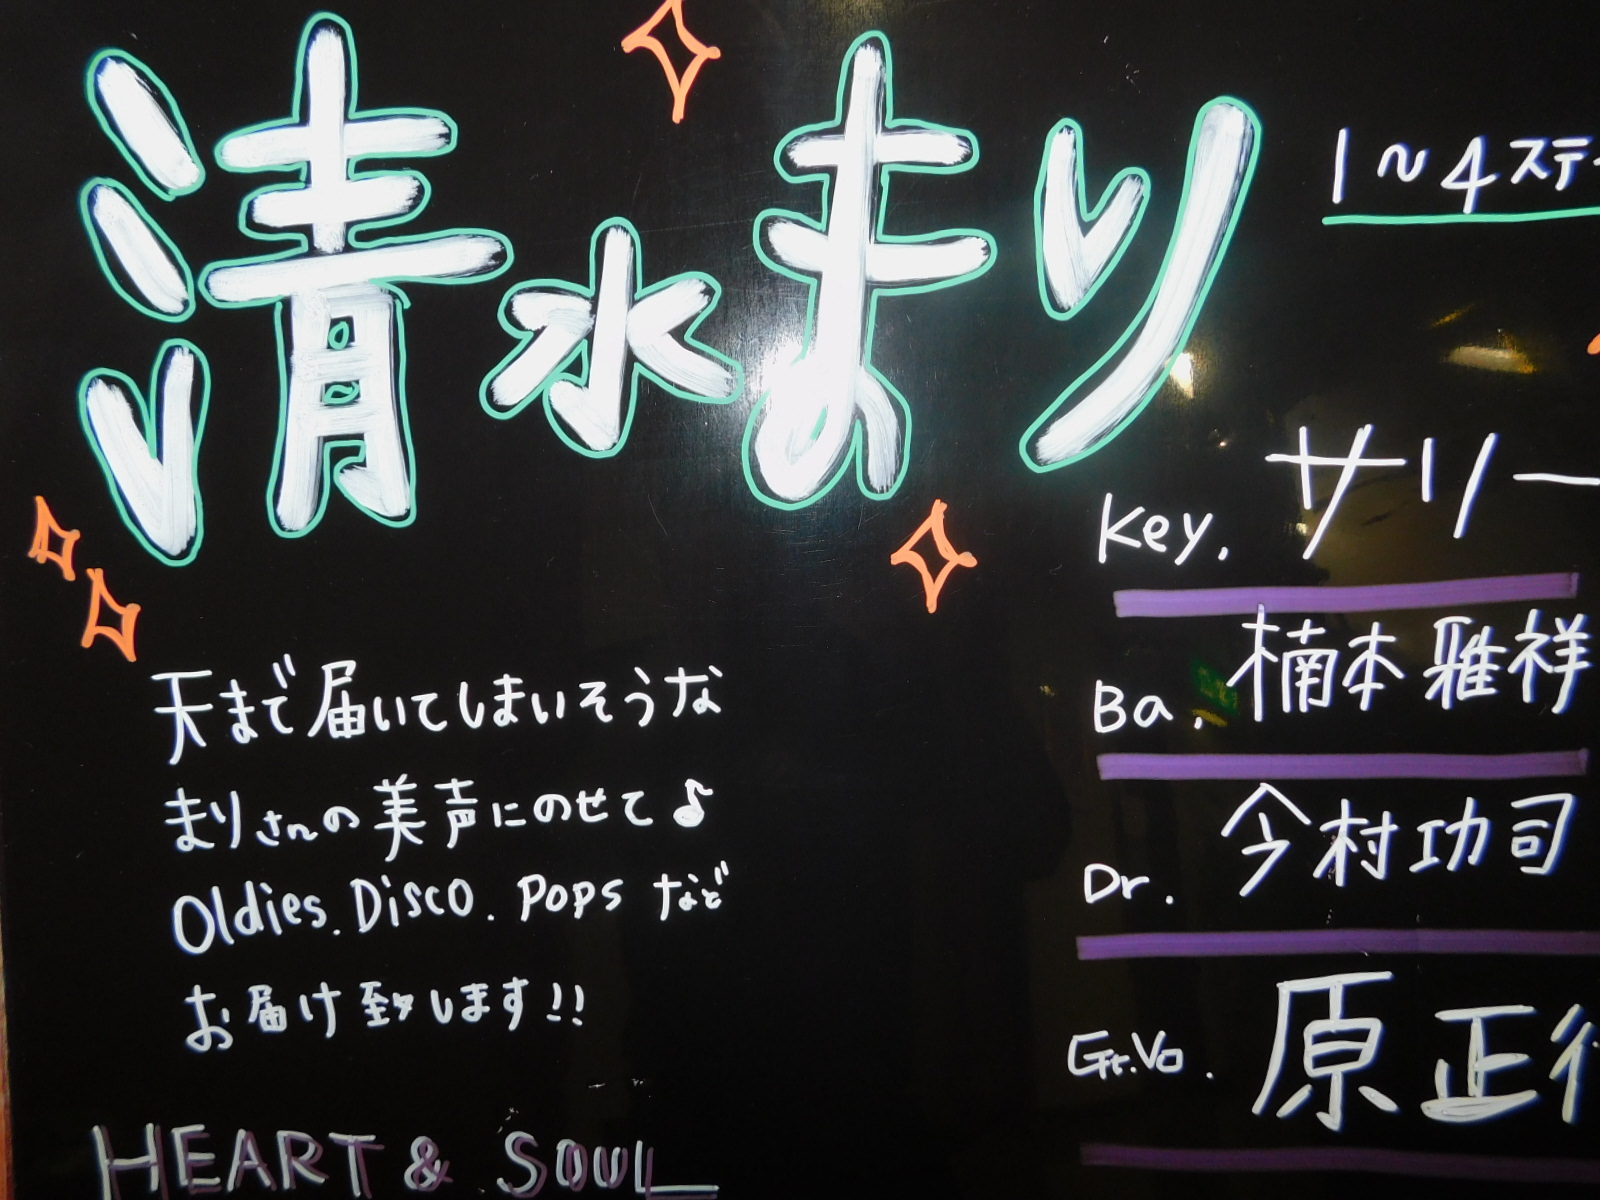 清水まり
天まで届いてしまいそうな
まりさんの美声にのせて♪
Oldies. Disco. Pops など
お届け致します!!
HEART & SOUL
1〜4ステ
Key. サリー
Ba. 楠本雅祥
Dr. 今村功司
Gt.Vo. 原正